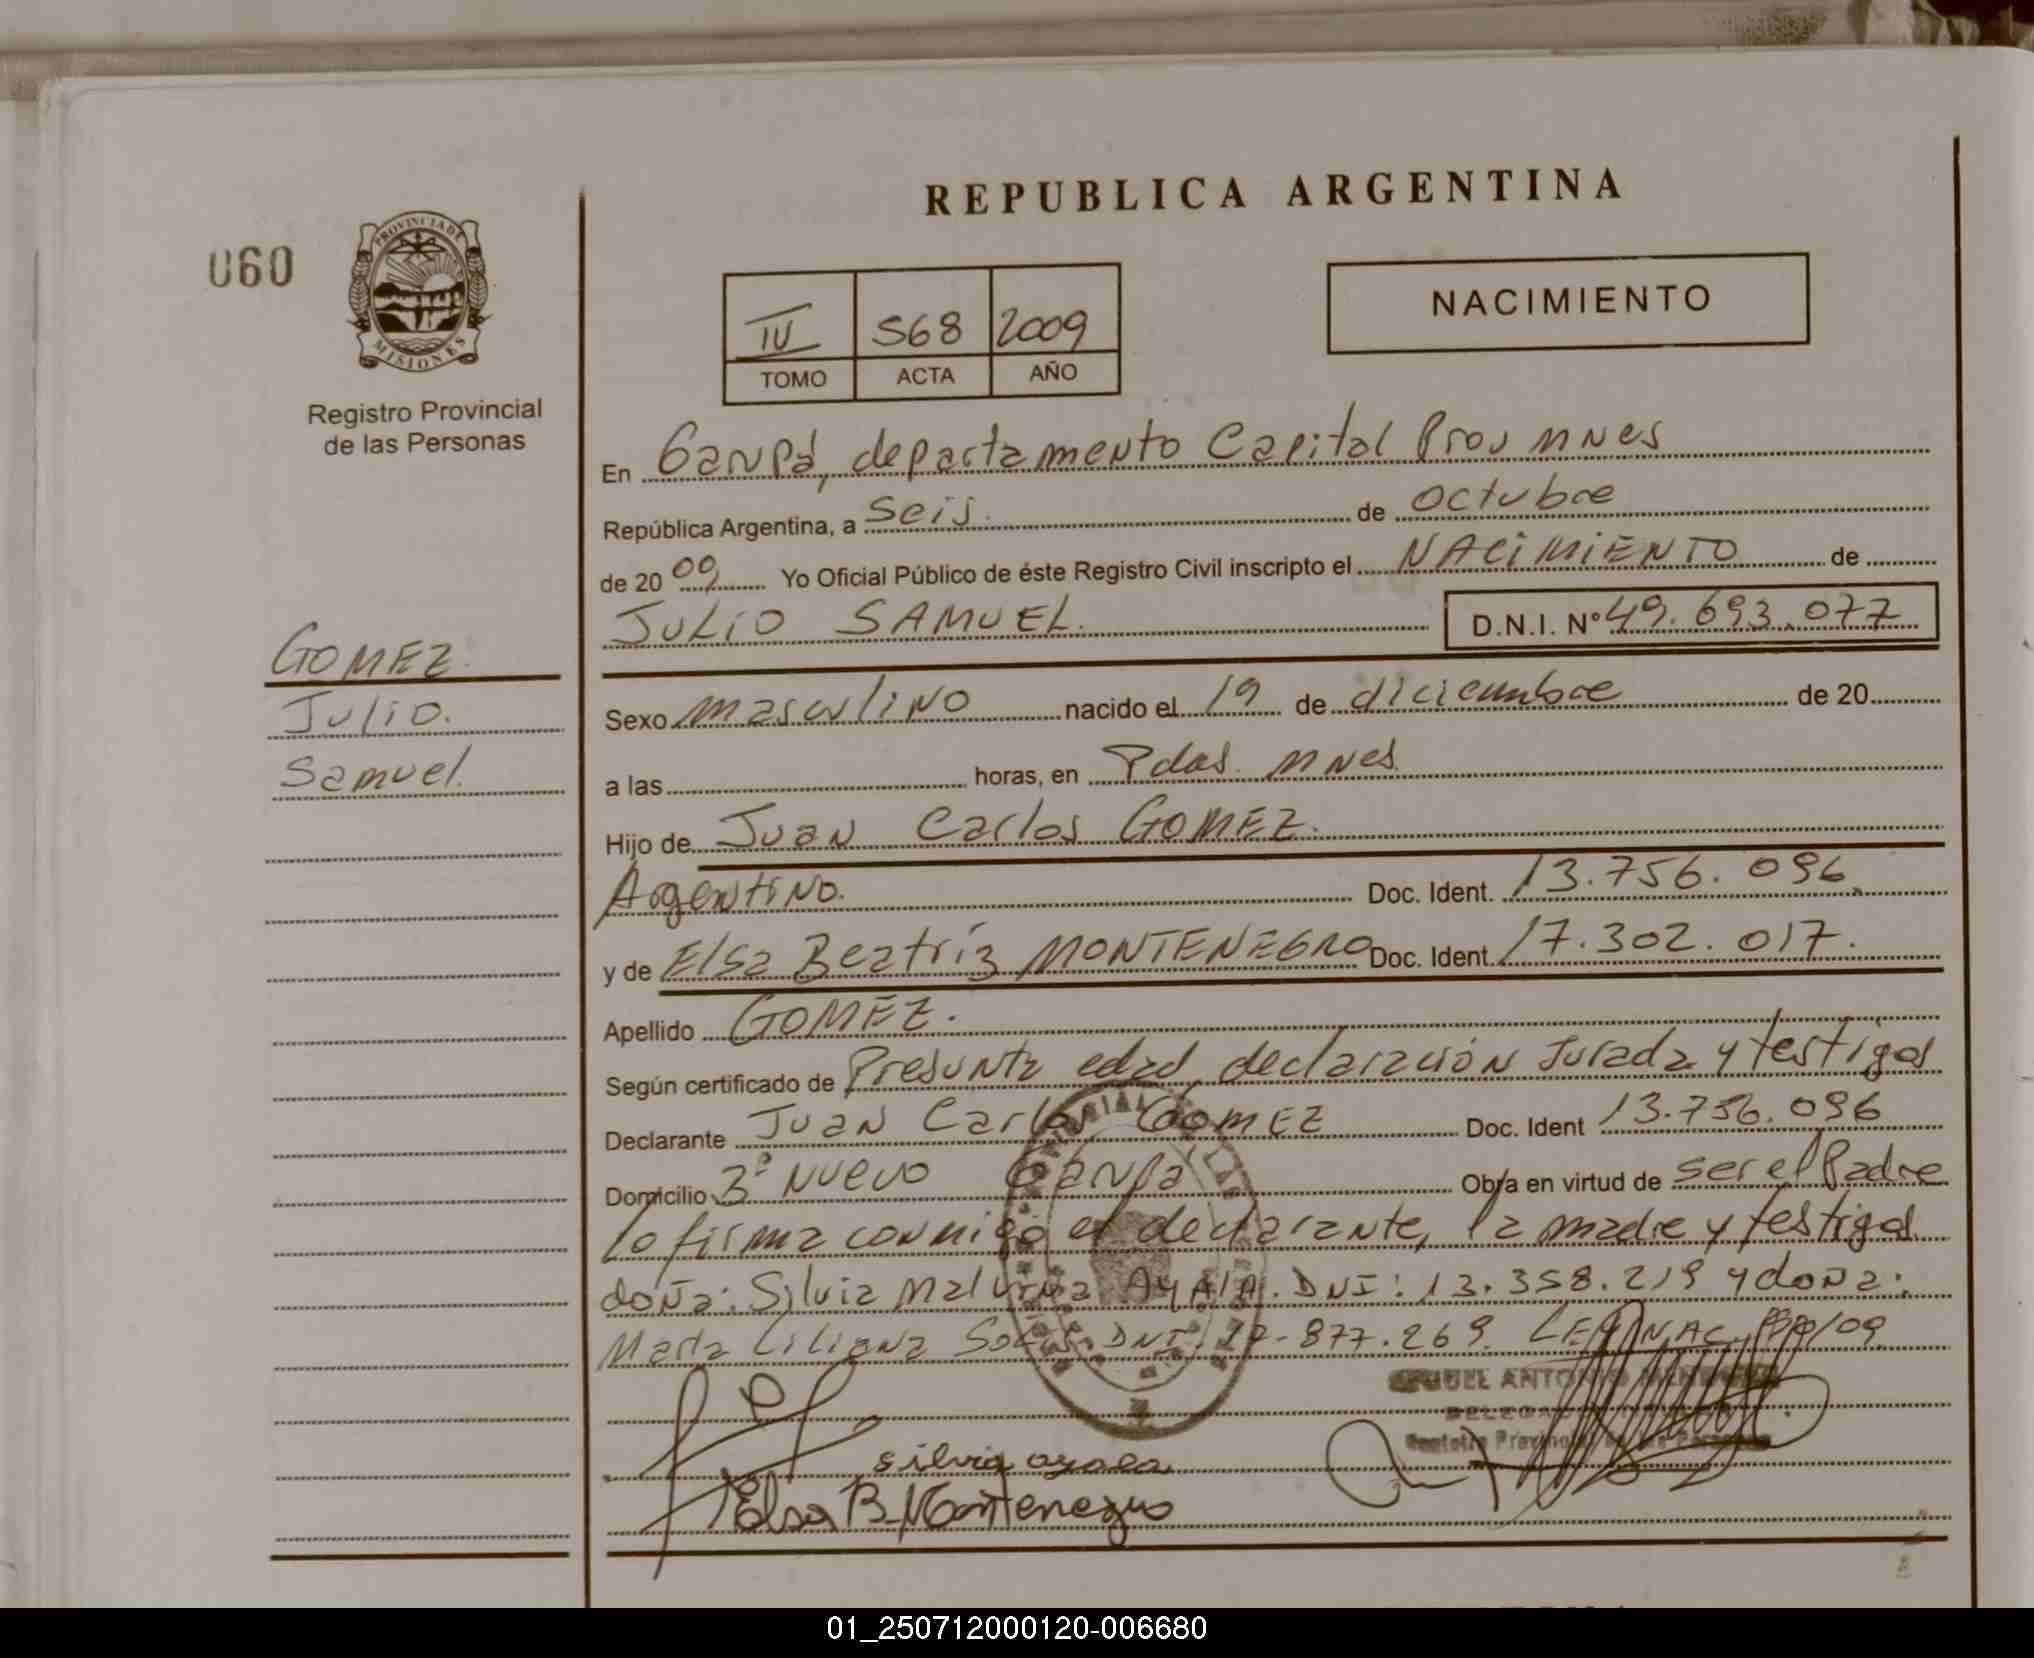 REPUBLICA ARGENTINA
060
PROVINCIA DE
MISIONES
Registro Provincial
de las Personas
NACIMIENTO
IV 568 2009
TOMO ACTA AÑO
En Garupá, departamento Capital Prov Mnes
República Argentina, a Seis. de octubre
de 20 09 Yo Oficial Público de éste Registro Civil inscripto el NACIMIENTO de
JULIO SAMUEL. D.N.I. Nº 49.693.077
GOMEZ.
Julio.
Samuel.
Sexo masculino nacido el 19 de diciembre de 20
a las horas, en Pdas. Mnes.
Hijo de Juan Carlos GOMEZ.
Argentino. Doc. Ident. 13.756.096.
y de Elsa Beatríz MONTENEGRO Doc. Ident. 17.302.017.
Apellido GOMEZ.
Según certificado de Presunta edad, declaración Jurada y testigos
Declarante Juan Carlos GOMEZ Doc. Ident 13.756.096
Domicilio Bº Nuevo Garupá Obra en virtud de ser el Padre
Lo firma conmigo el declarante, la madre y testigos
doña: Silvia Malvina AyAlA. DNI: 13.358.219 y doña:
Marta Liliana DNI: 877.269. /09
ANTONIO
Registro Provincial de las Personas
silvia ayala
Elsa B. Montenegro
01_250712000120-006680